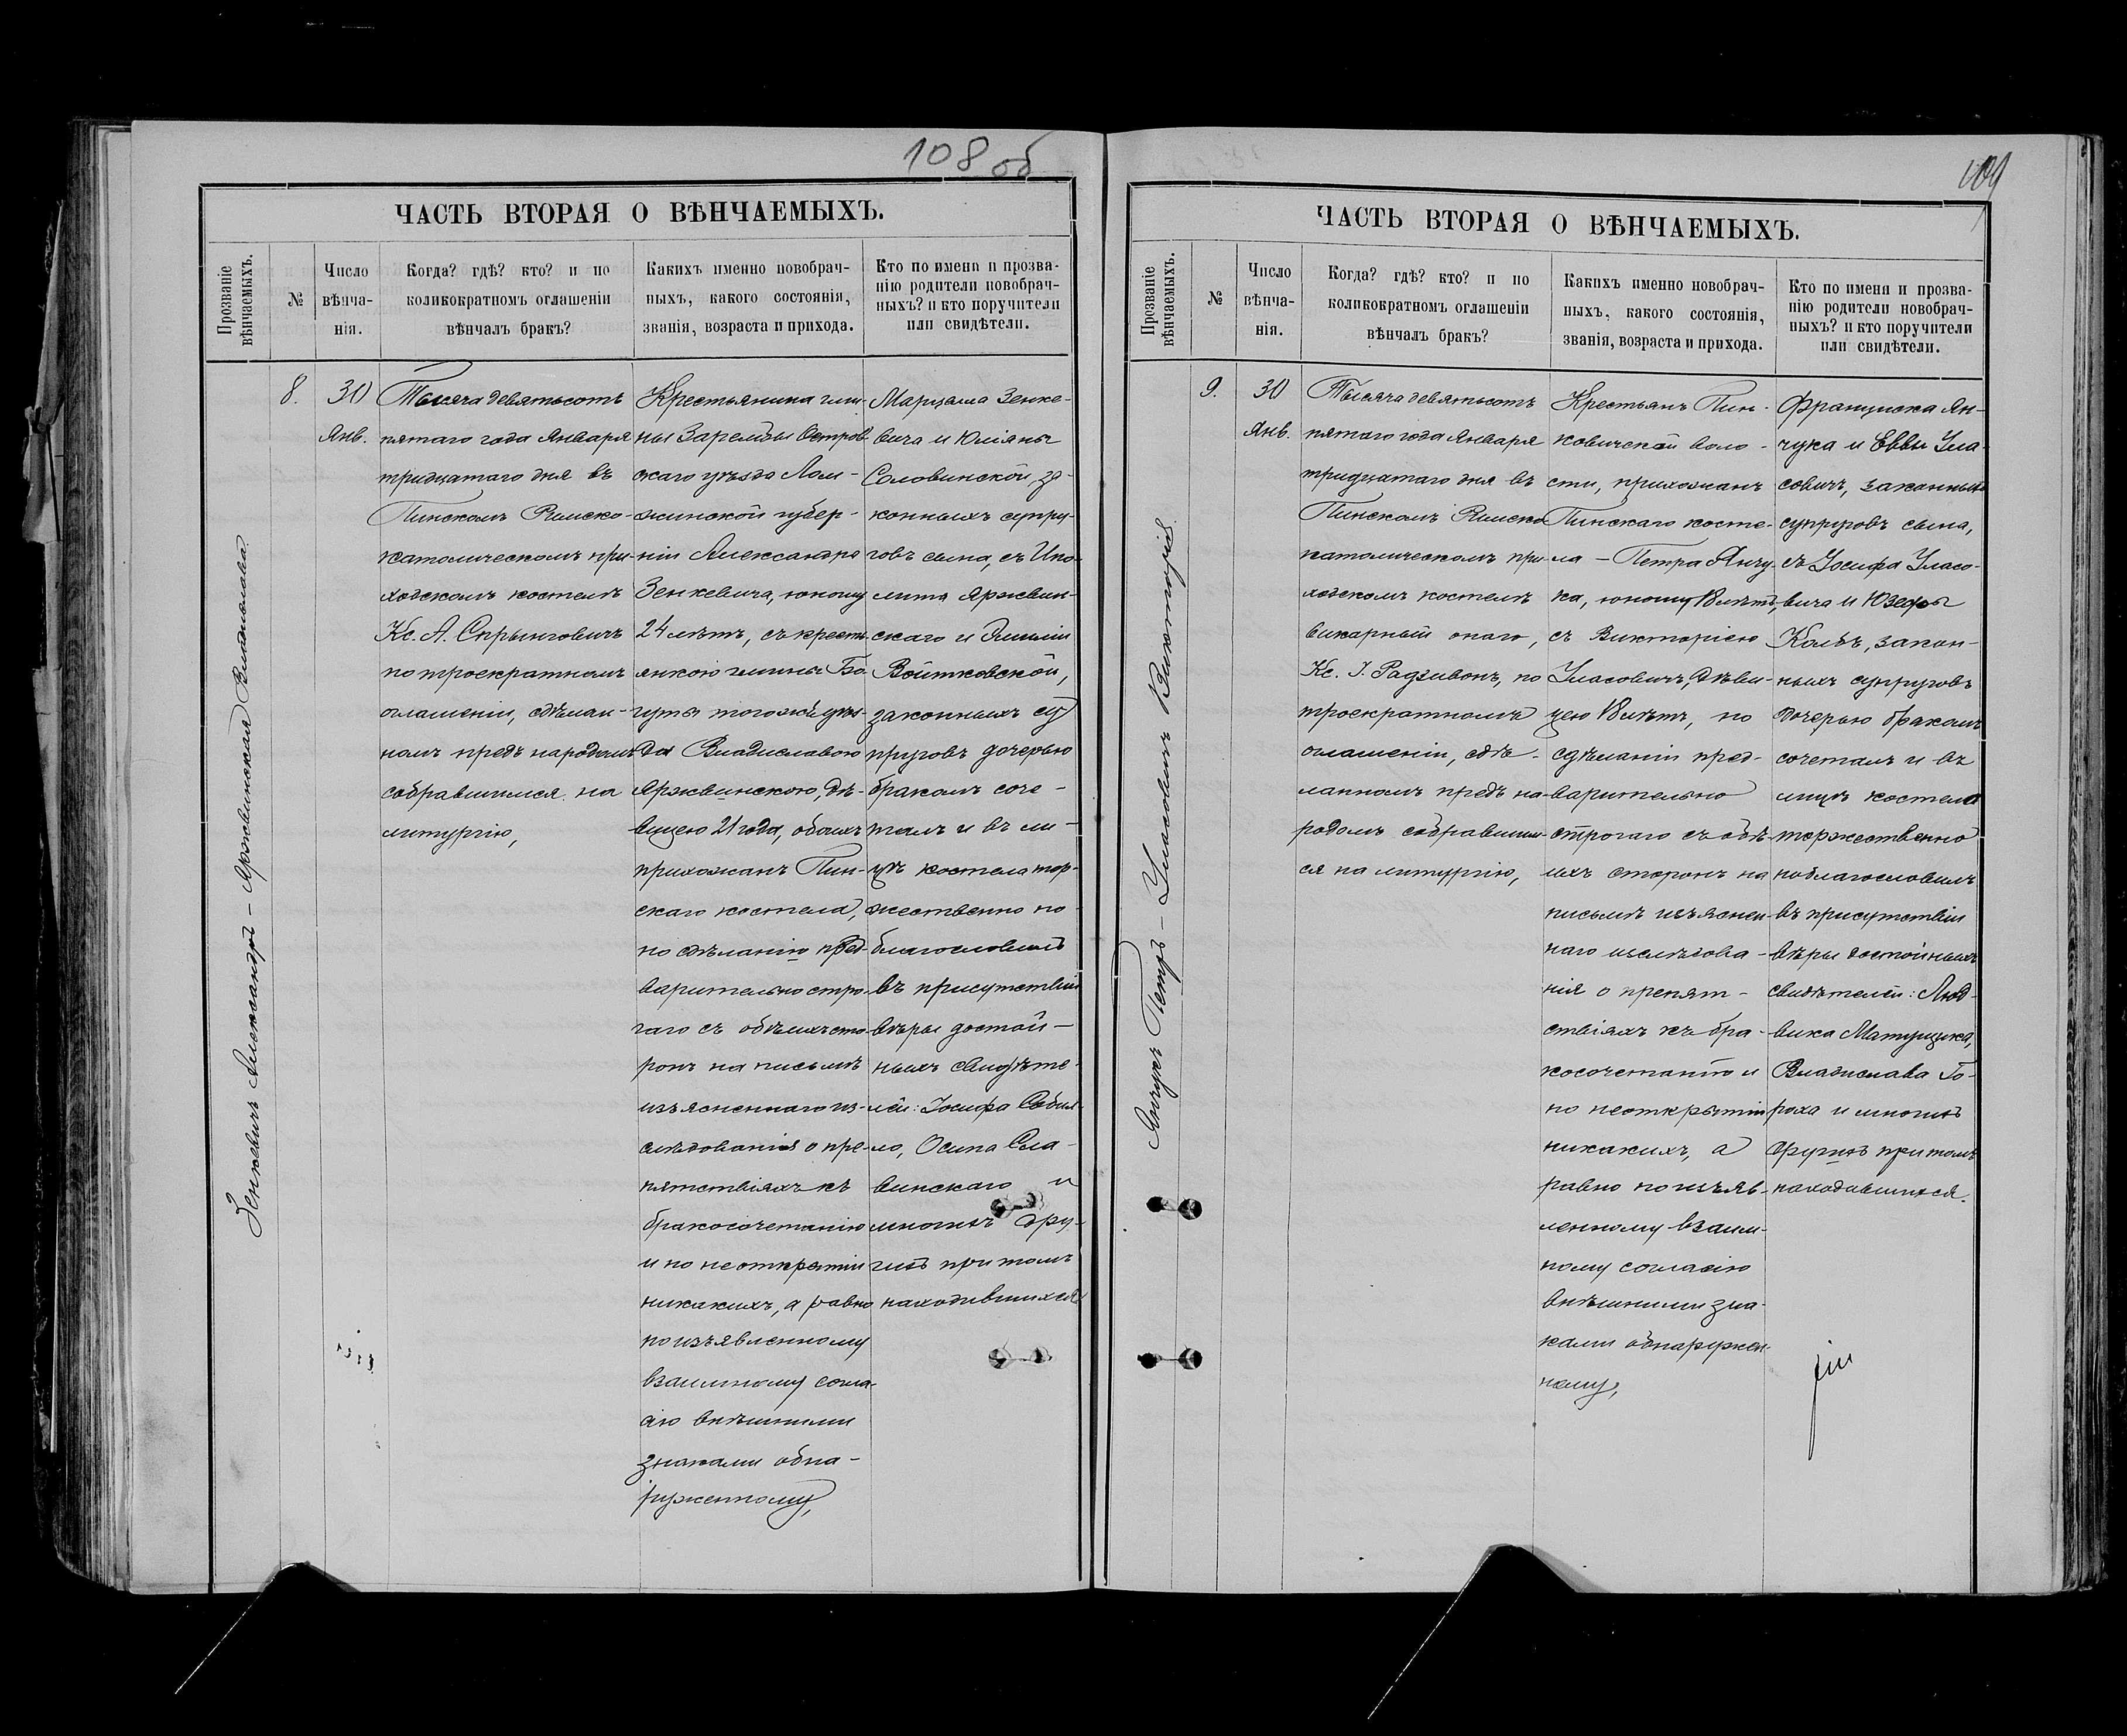 108 об
ЧАСТЬ ВТОРАЯ О ВѢНЧАЕМЫХЪ.
Прозваніе
вѣнчаемыхъ.
№
Число
вѣнча-
нія.
Когда? гдѣ? кто? и по
коликократномъ оглашеніи
вѣнчалъ бракъ?
Какихъ именно новобрач-
ныхъ, какого состоянія,
званія, возраста и прихода.
Кто по имени и прозва-
нію родители новобрач-
ныхъ? и кто поручители
или свидѣтели.
Зенкевичъ Александръ – Яржвинская Владислава
8.
30
Янв.
Тысяча девятьсотъ
пятаго года Января
тридцатаго дня въ
Пинскомъ Римско-
католическомъ при-
ходскомъ костелѣ
Кс. А. Скрынговичъ
по троекратномъ
оглашеніи, сдѣлан-
номъ предъ народомъ
собравшимся на
литургію,
Крестьянина гми-
ны Зарембы Остров-
скаго уѣзда Лом-
жинской губер-
ніи Александра
Зенкевича, юношу
24 лѣтъ, съ кресть-
янкою гмины Бо-
гуты тогожъ уѣз-
да Владиславою
Яржвинскою, дѣ-
вицею 21 года, обоихъ
прихожанъ Пин-
скаго костела,
по сдѣланію пред-
варительно стро-
гаго съ обѣихъ сто-
ронъ на письмѣ
изъясненнаго из-
слѣдованія о пре-
пятствіяхъ къ
бракосочетанію
и по неоткрытіи
никакихъ, а равно
по изъявленному
взаимному согла-
сію внѣшними
знаками обна-
руженному,
Марцела Зенке-
вича и Юліяны
Соловинской, за-
конныхъ супру-
говъ сына, съ Ипо-
лита Яржвин-
скаго и Эмиліи
Войтковской,
законныхъ су
пруговъ дочерью
бракомъ соче-
талъ и въ ли-
цѣ костела тор-
жественно по-
благословилъ
въ присутствіи
вѣры достой-
ныхъ свидѣте-
лей: Іосифа
ло, Осипа Сла-
винскаго и
многихъ дру-
гихъ при томъ
находившихся.
109
ЧАСТЬ ВТОРАЯ О ВѢНЧАЕМЫХЪ.
Прозваніе
вѣнчаемыхъ.
№
Число
вѣнча-
нія.
Когда? гдѣ? кто? и по
коликократномъ оглашеніи
вѣнчалъ бракъ?
Какихъ именно новобрач-
ныхъ, какого состоянія,
званія, возраста и прихода.
Кто по имени и прозва-
нію родители новобрач-
ныхъ? и кто поручители
или свидѣтели.
Янчукъ Петръ – Уласовичъ Викторія
9.
30
Янв.
Тысяча девятьсотъ
пятаго года Января
тридцатаго дня въ
Пинскомъ Римско
католическомъ при-
ходскомъ костелѣ
викарный онаго,
Кс. І. Радзивонъ, по
троекратномъ
оглашеніи, сдѣ-
ланномъ предъ на-
родомъ собравшим-
ся на литургію,
Крестьянъ Пин-
ковичской воло-
сти, прихожанъ
Пинскаго косте-
ла – Петра Янчу-
ка, юношу лѣтъ,
съ Викторіею
Уласовичъ, дѣви-
цею 18 лѣтъ, по
сдѣланіи пред-
варительно
строгаго съ обѣ-
ихъ сторонъ на
письмѣ изъяснен-
наго изслѣдова-
нія о препят-
ствіяхъ къ бра-
косочетанію и
по неоткрытіи
никакихъ, а
равно по изъяв-
ленному взаим-
ному согласію
внѣшними зна-
ками обнаружен-
ному,
Франциска Ян-
чука и Еввы Ула-
совичъ, законныхъ
супруговъ сына,
съ Іосифа Уласо-
вича и Юзефы
Колбъ, закон-
ныхъ супруговъ
дочерью бракомъ
сочеталъ и въ
лицѣ костела
торжественно
поблагословилъ
въ присутствіи
вѣры достойныхъ
свидѣтелей: Люд-
вика Матущика,
Владислава Го-
роха и многихъ
другихъ при томъ
находившихся.